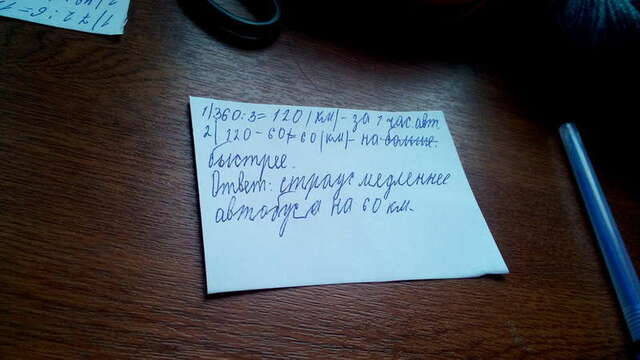 1) 72 : 6 = 1
1) 360 : 3 = 120 (км) - за 1 час авт.
2) 120 - 60 = 60 (км) - на больше.
быстрее.
Ответ: страус медленнее
автобуса на 60 км.